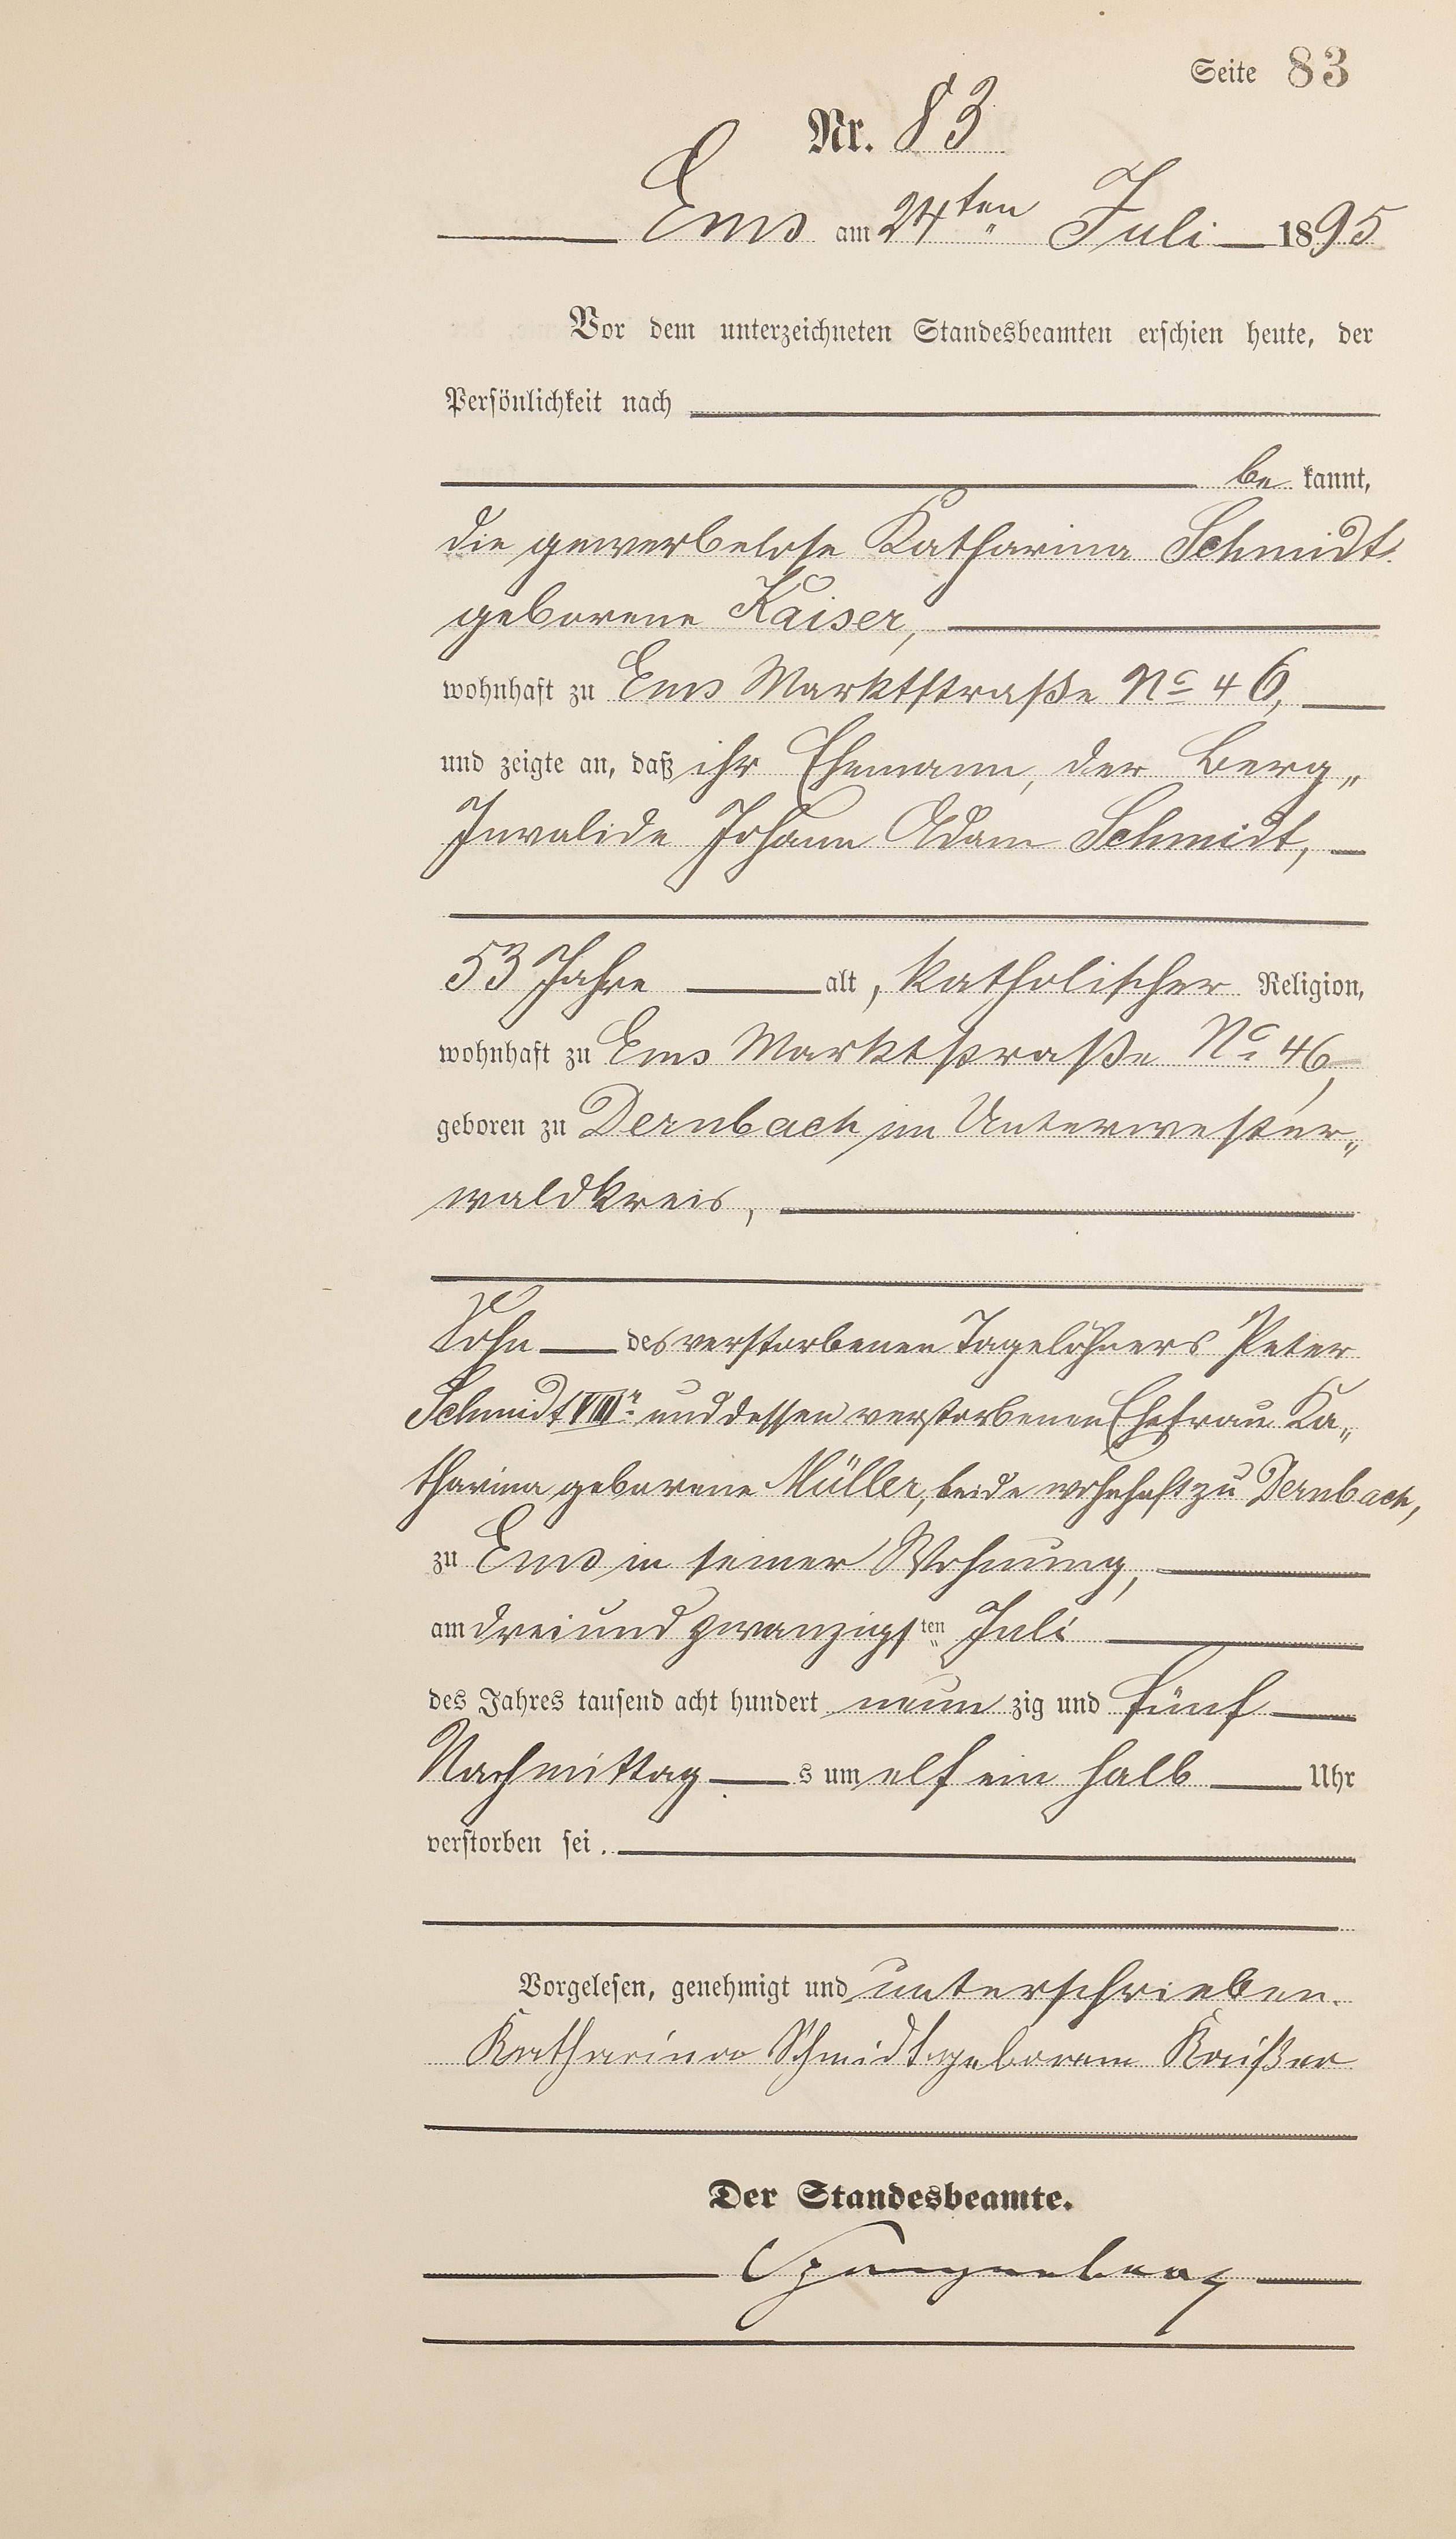 Seite 83
Nr. 83
Ems am 24ten Juli 1895
Vor dem unterzeichneten Standesbeamten erschien heute, der
Persönlichkeit nach
be kannt,
die gewerbelose Katharina Schmidt
geborene Kaiser,
wohnhaft zu Ems Marktstraße No 46,
und zeigte an, daß ihr Ehemann, der Berg„
Invalide Johann Adam Schmidt,
53 Jahre alt, katholischer Religion,
wohnhaft zu Ems Marktstraße No 46,
geboren zu Dernbach im Unterwester„
waldkreis,
Sohn des verstorbenen Tagelöhners Peter
Schmidt VIIIr und dessen verstorbenen Ehefrau Ka„
tharina geborene Müller, beide wohnhaft zu Dernbach,
zu Ems in seiner Wohnung,
am dreiundzwanzigsten Juli
des Jahres tausend acht hundert neun zig und fünf
Nachmittag s um elf ein halb Uhr
verstorben sei.
Vorgelesen, genehmigt und unterschrieben.
Katharina Schmidt geboren Kaißer
Der Standesbeamte.